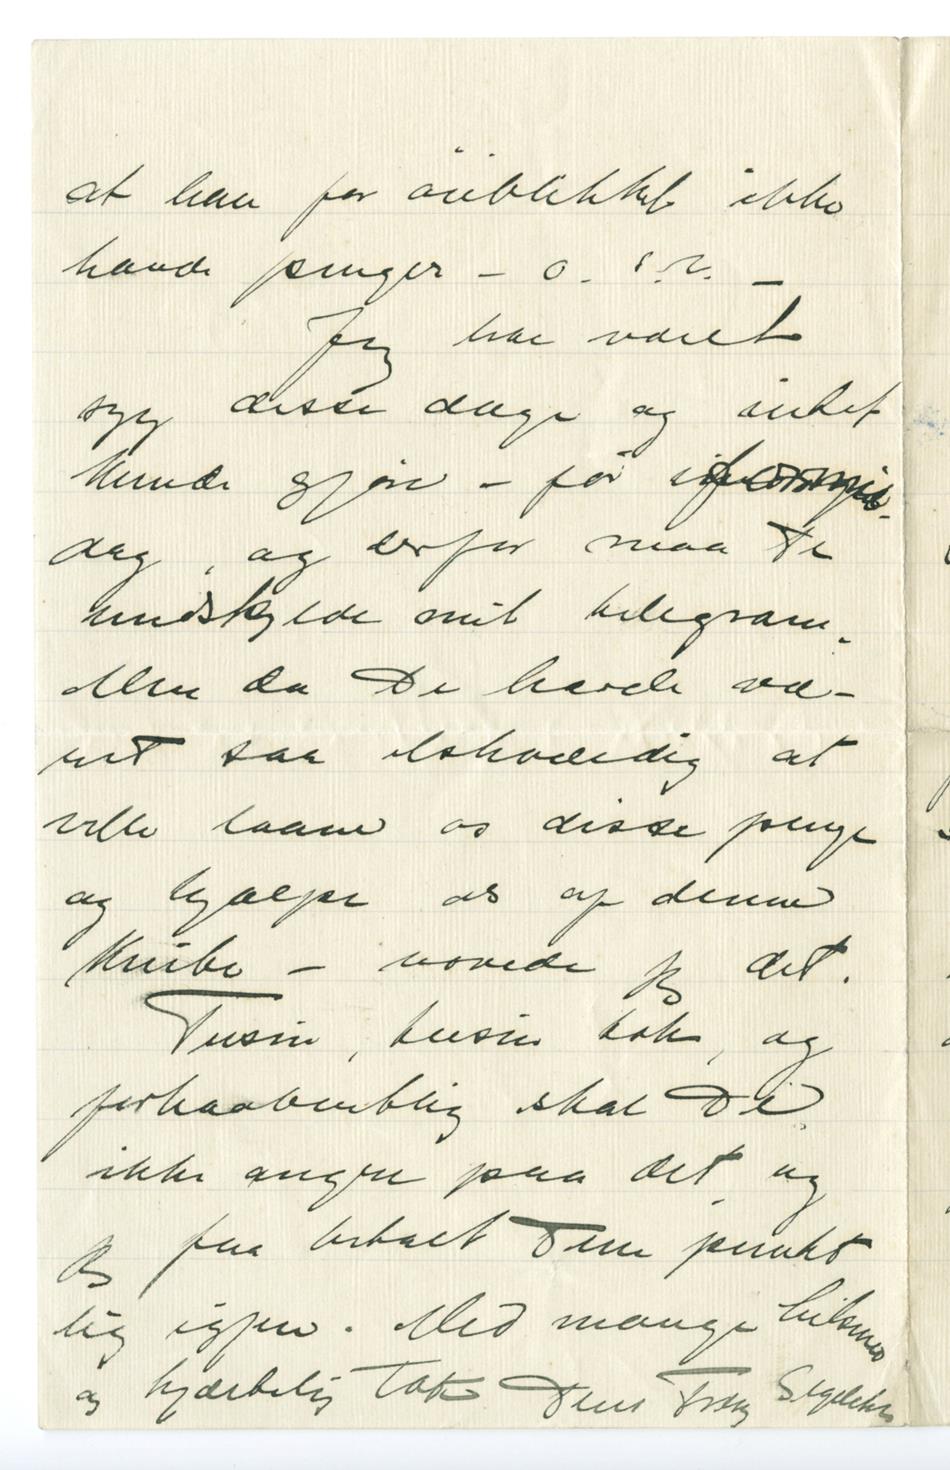 at han for øieblikket ikke
havde penger – o. s. v. –
Jeg har været
syg disse dage og intet
kunde gjøre – før i formid-
dag, og derfor maa De
undskylde mit telegram.
Men da De havde væ-
ret saa elskværdig at
ville laane os disse penge
og hjælpe os af denne
Knibe – vovede jeg det.
Tusin, tusin tak, og
forhaabentlig skal De
ikke angre paa det, og
jeg faa betalt Dem punkt
lig igjen. Med mange hilsner
og hjærtelig Tak Deres